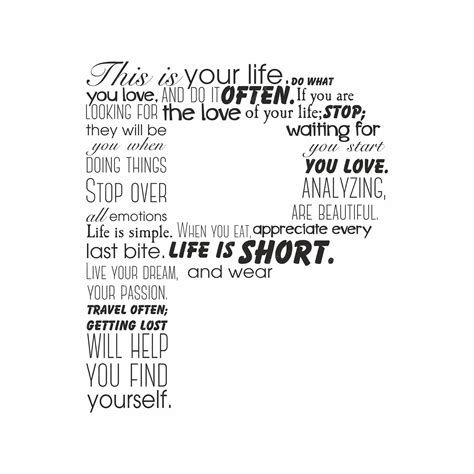 This is your life. DO WHAT
you love, AND DO IT OFTEN. If you are
LOOKING FOR the love of your life; STOP;
they will be waiting for
you when you start
DOING THINGS YOU LOVE.
STOP OVER ANALYZING,
all emotions ARE BEAUTIFUL.
Life is simple. WHEN YOU EAT, appreciate every
last bite. LIFE IS SHORT.
LIVE YOUR DREAM, and wear
YOUR PASSION.
TRAVEL OFTEN;
GETTING LOST
WILL HELP
YOU FIND
yourself.